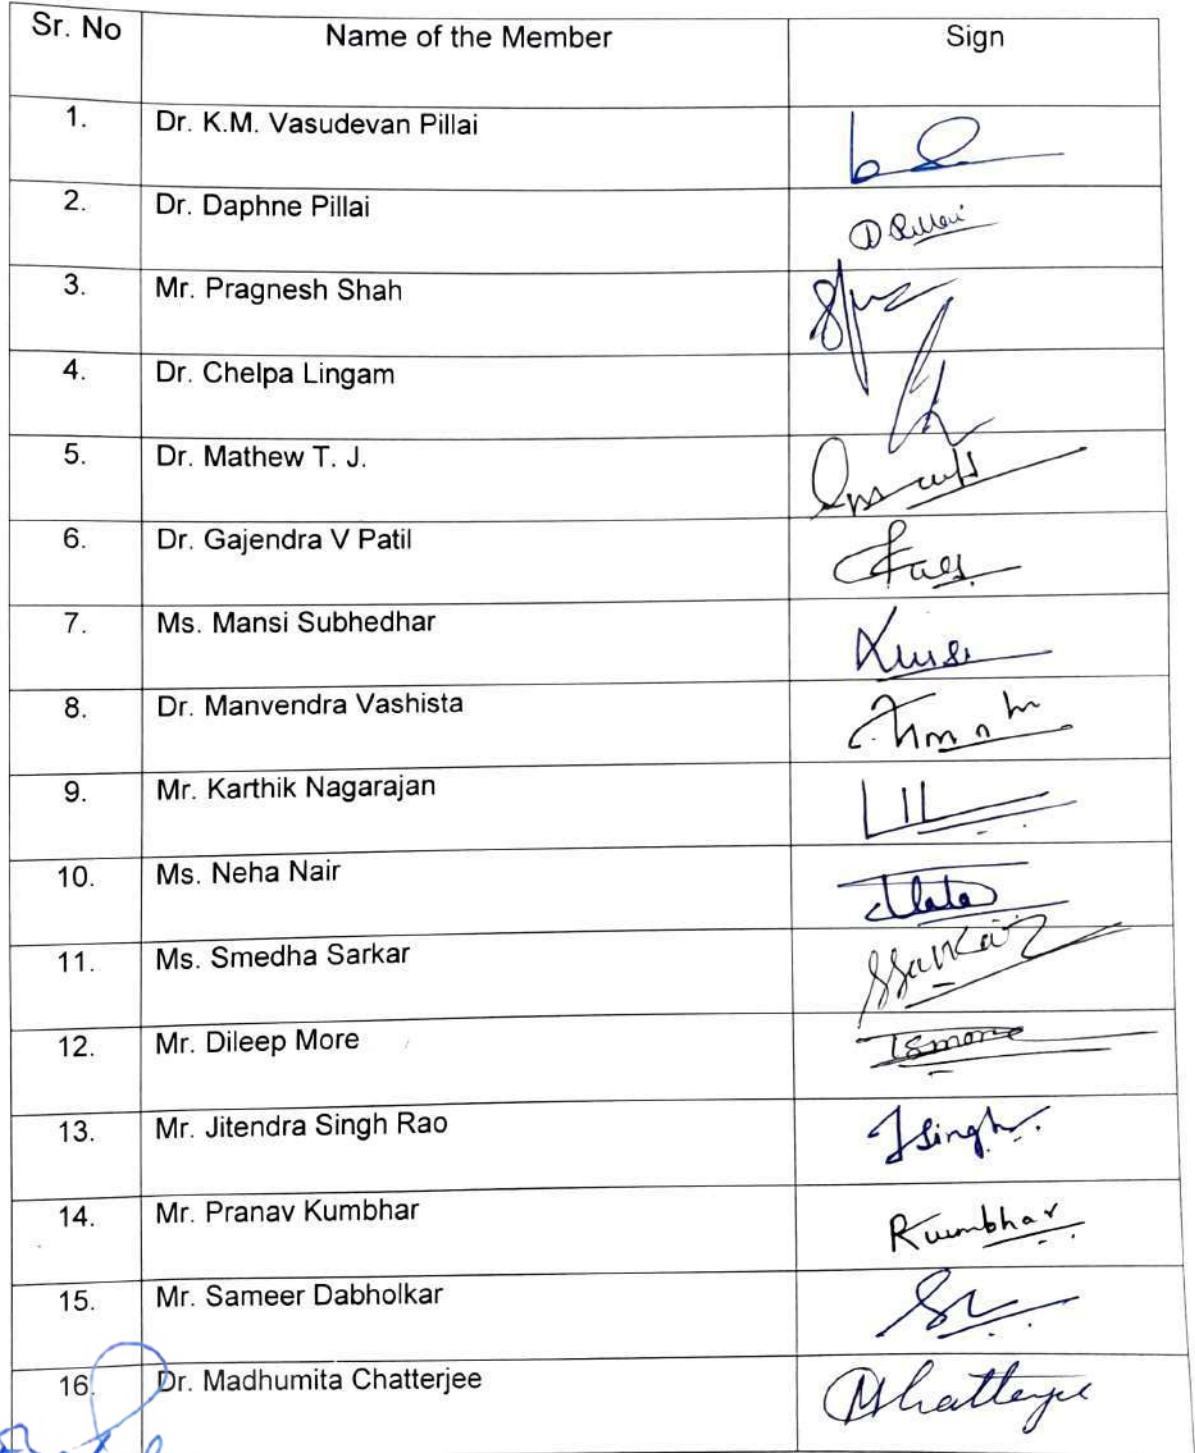 Sr. No Name of the Member Sign
1. Dr. K.M. Vasudevan Pillai
2. Dr. Daphne Pillai D Pillai
3. Mr. Pragnesh Shah
4. Dr. Chelpa Lingam
5. Dr. Mathew T. J.
6. Dr. Gajendra V Patil
7. Ms. Mansi Subhedhar
8. Dr. Manvendra Vashista
9. Mr. Karthik Nagarajan
10. Ms. Neha Nair
11. Ms. Smedha Sarkar SSarkar
12. Mr. Dileep More
13. Mr. Jitendra Singh Rao JSingh
14. Mr. Pranav Kumbhar Kumbhar
15. Mr. Sameer Dabholkar
16. Dr. Madhumita Chatterjee MChatterjee